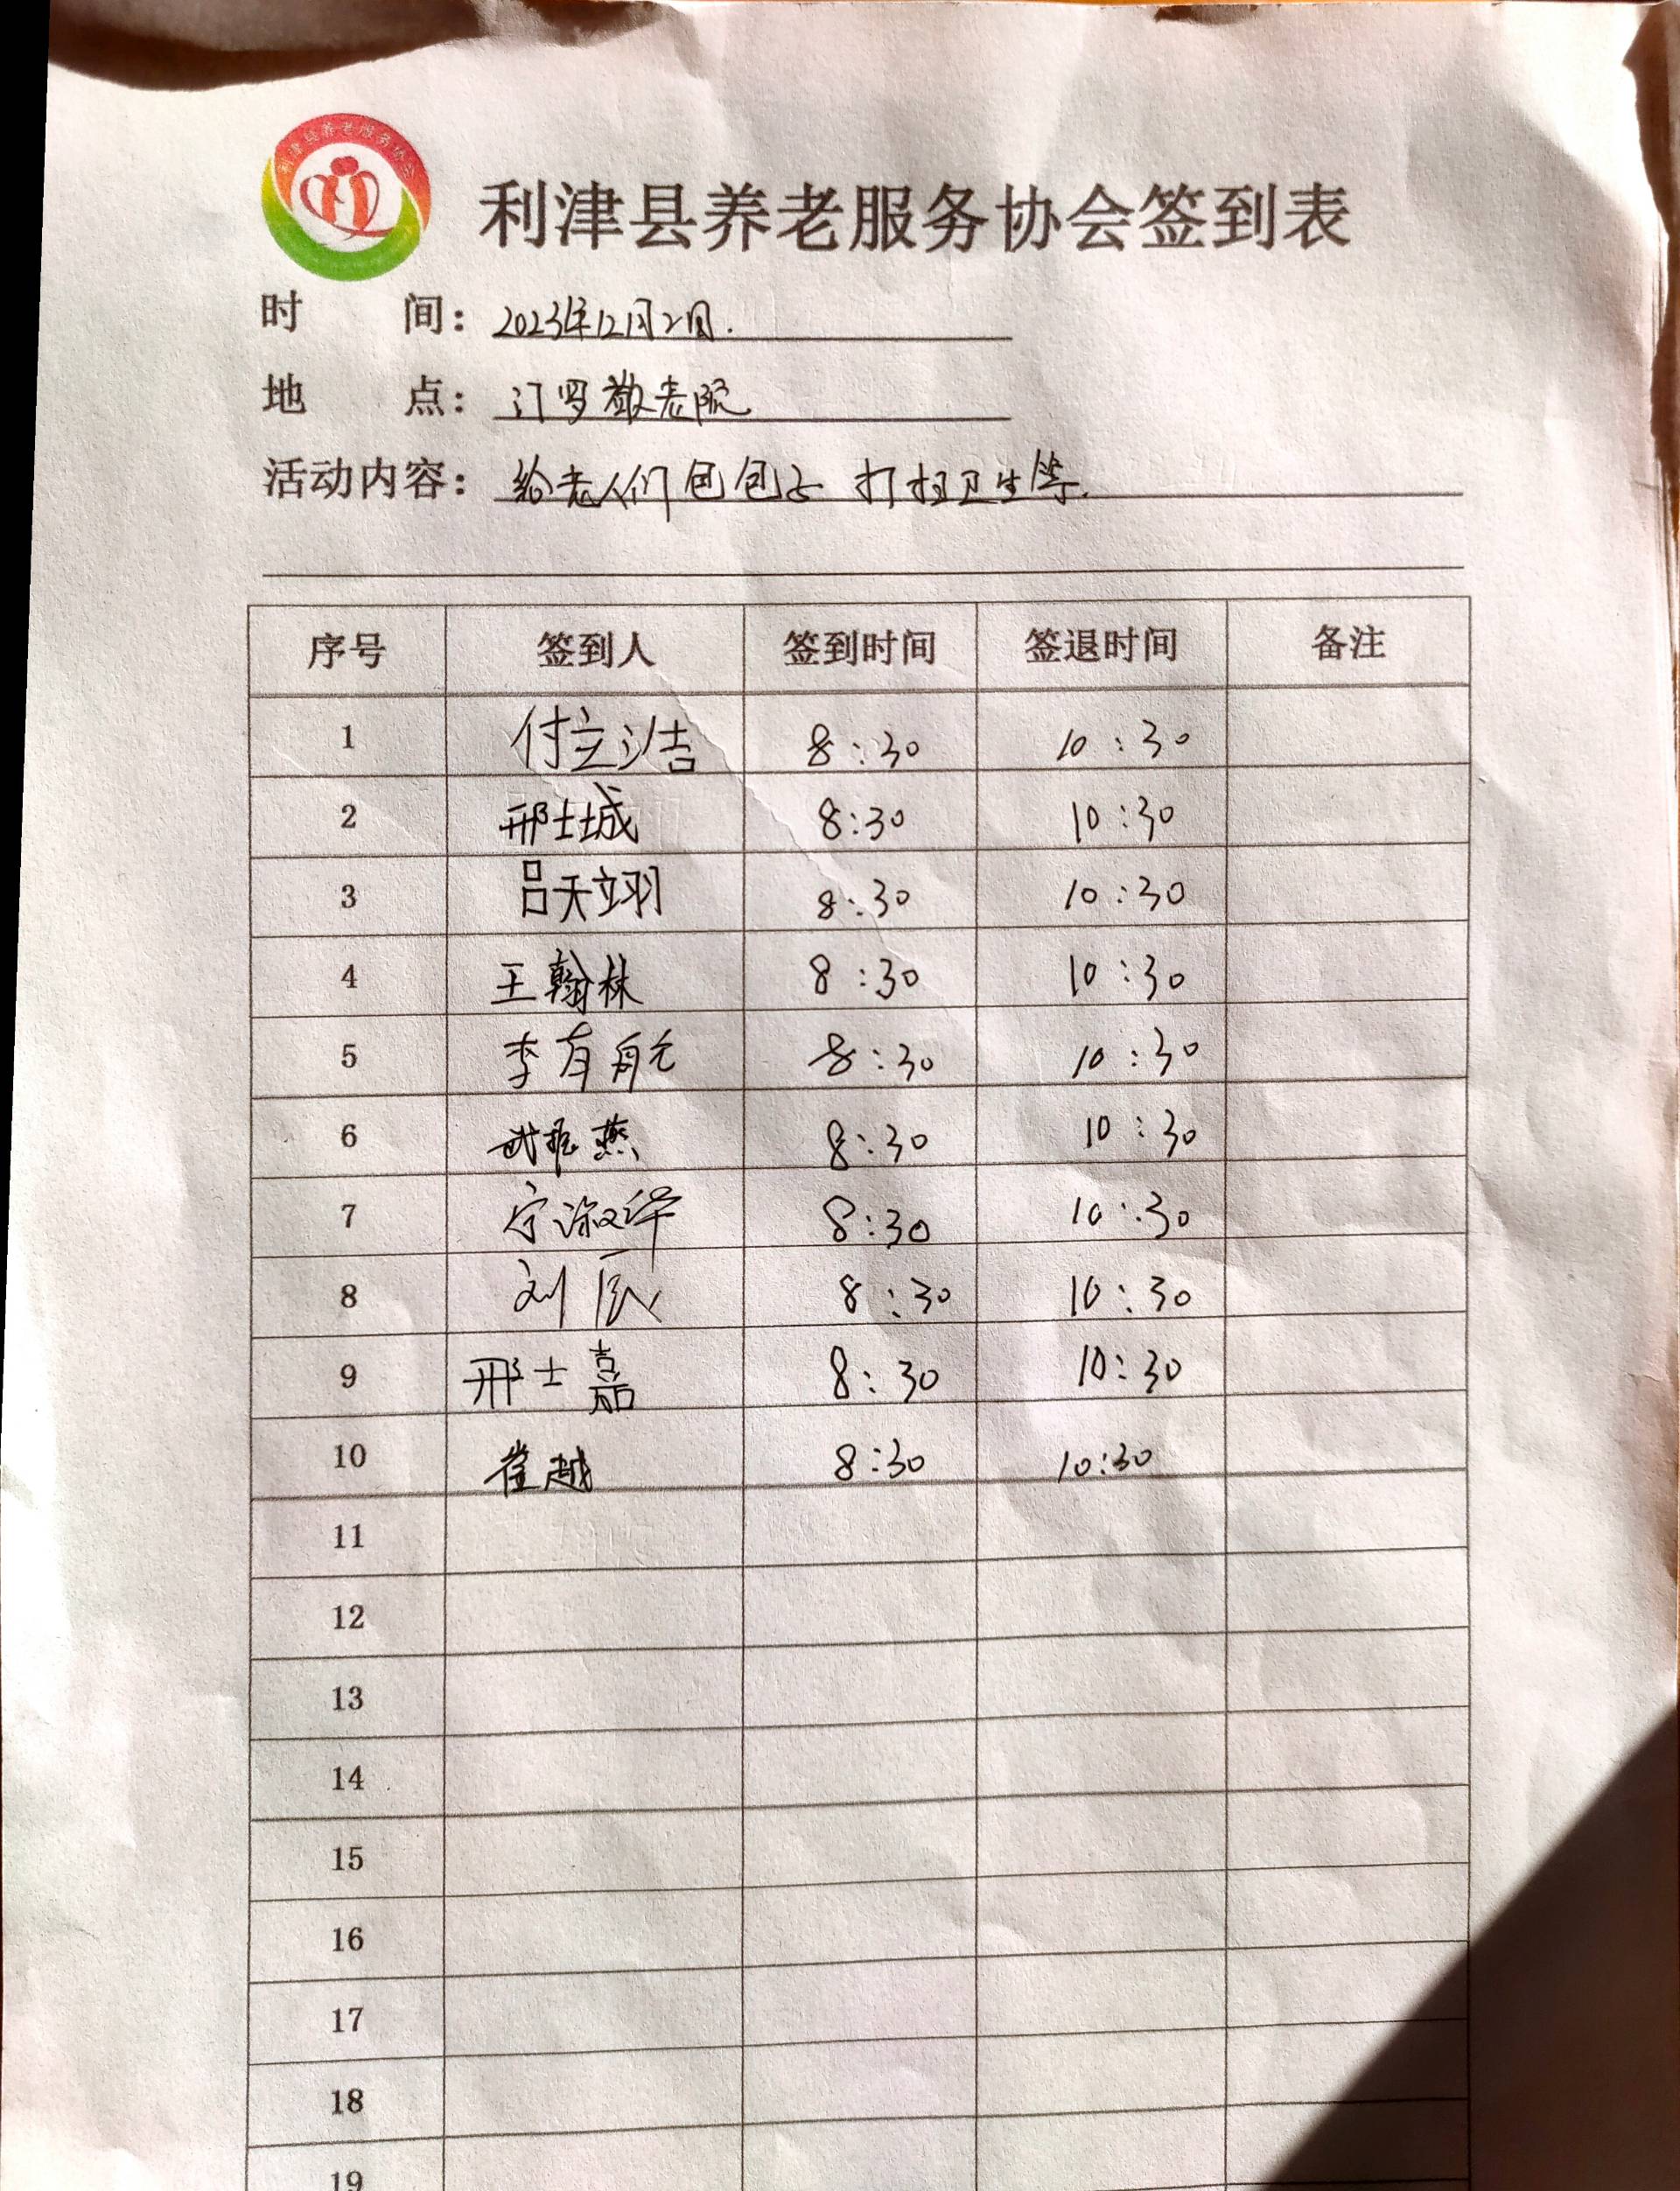 利津县养老服务协会
利津县养老服务协会签到表
时 间：2023年12月2日.
地 点：汀罗敬老院
活动内容：给老人们包包子 打扫卫生等.
序号 签到人 签到时间 签退时间 备注
1 付立洁 8:30 10:30
2 邢士城 8:30 10:30
3 吕天翊 8:30 10:30
4 王翰林 8:30 10:30
5 李有航 8:30 10:30
6 燕 8:30 10:30
7 宁淑华 8:30 10:30
8 刘 8:30 10:30
9 邢士嘉 8:30 10:30
10 崔越 8:30 10:30
11
12
13
14
15
16
17
18
19